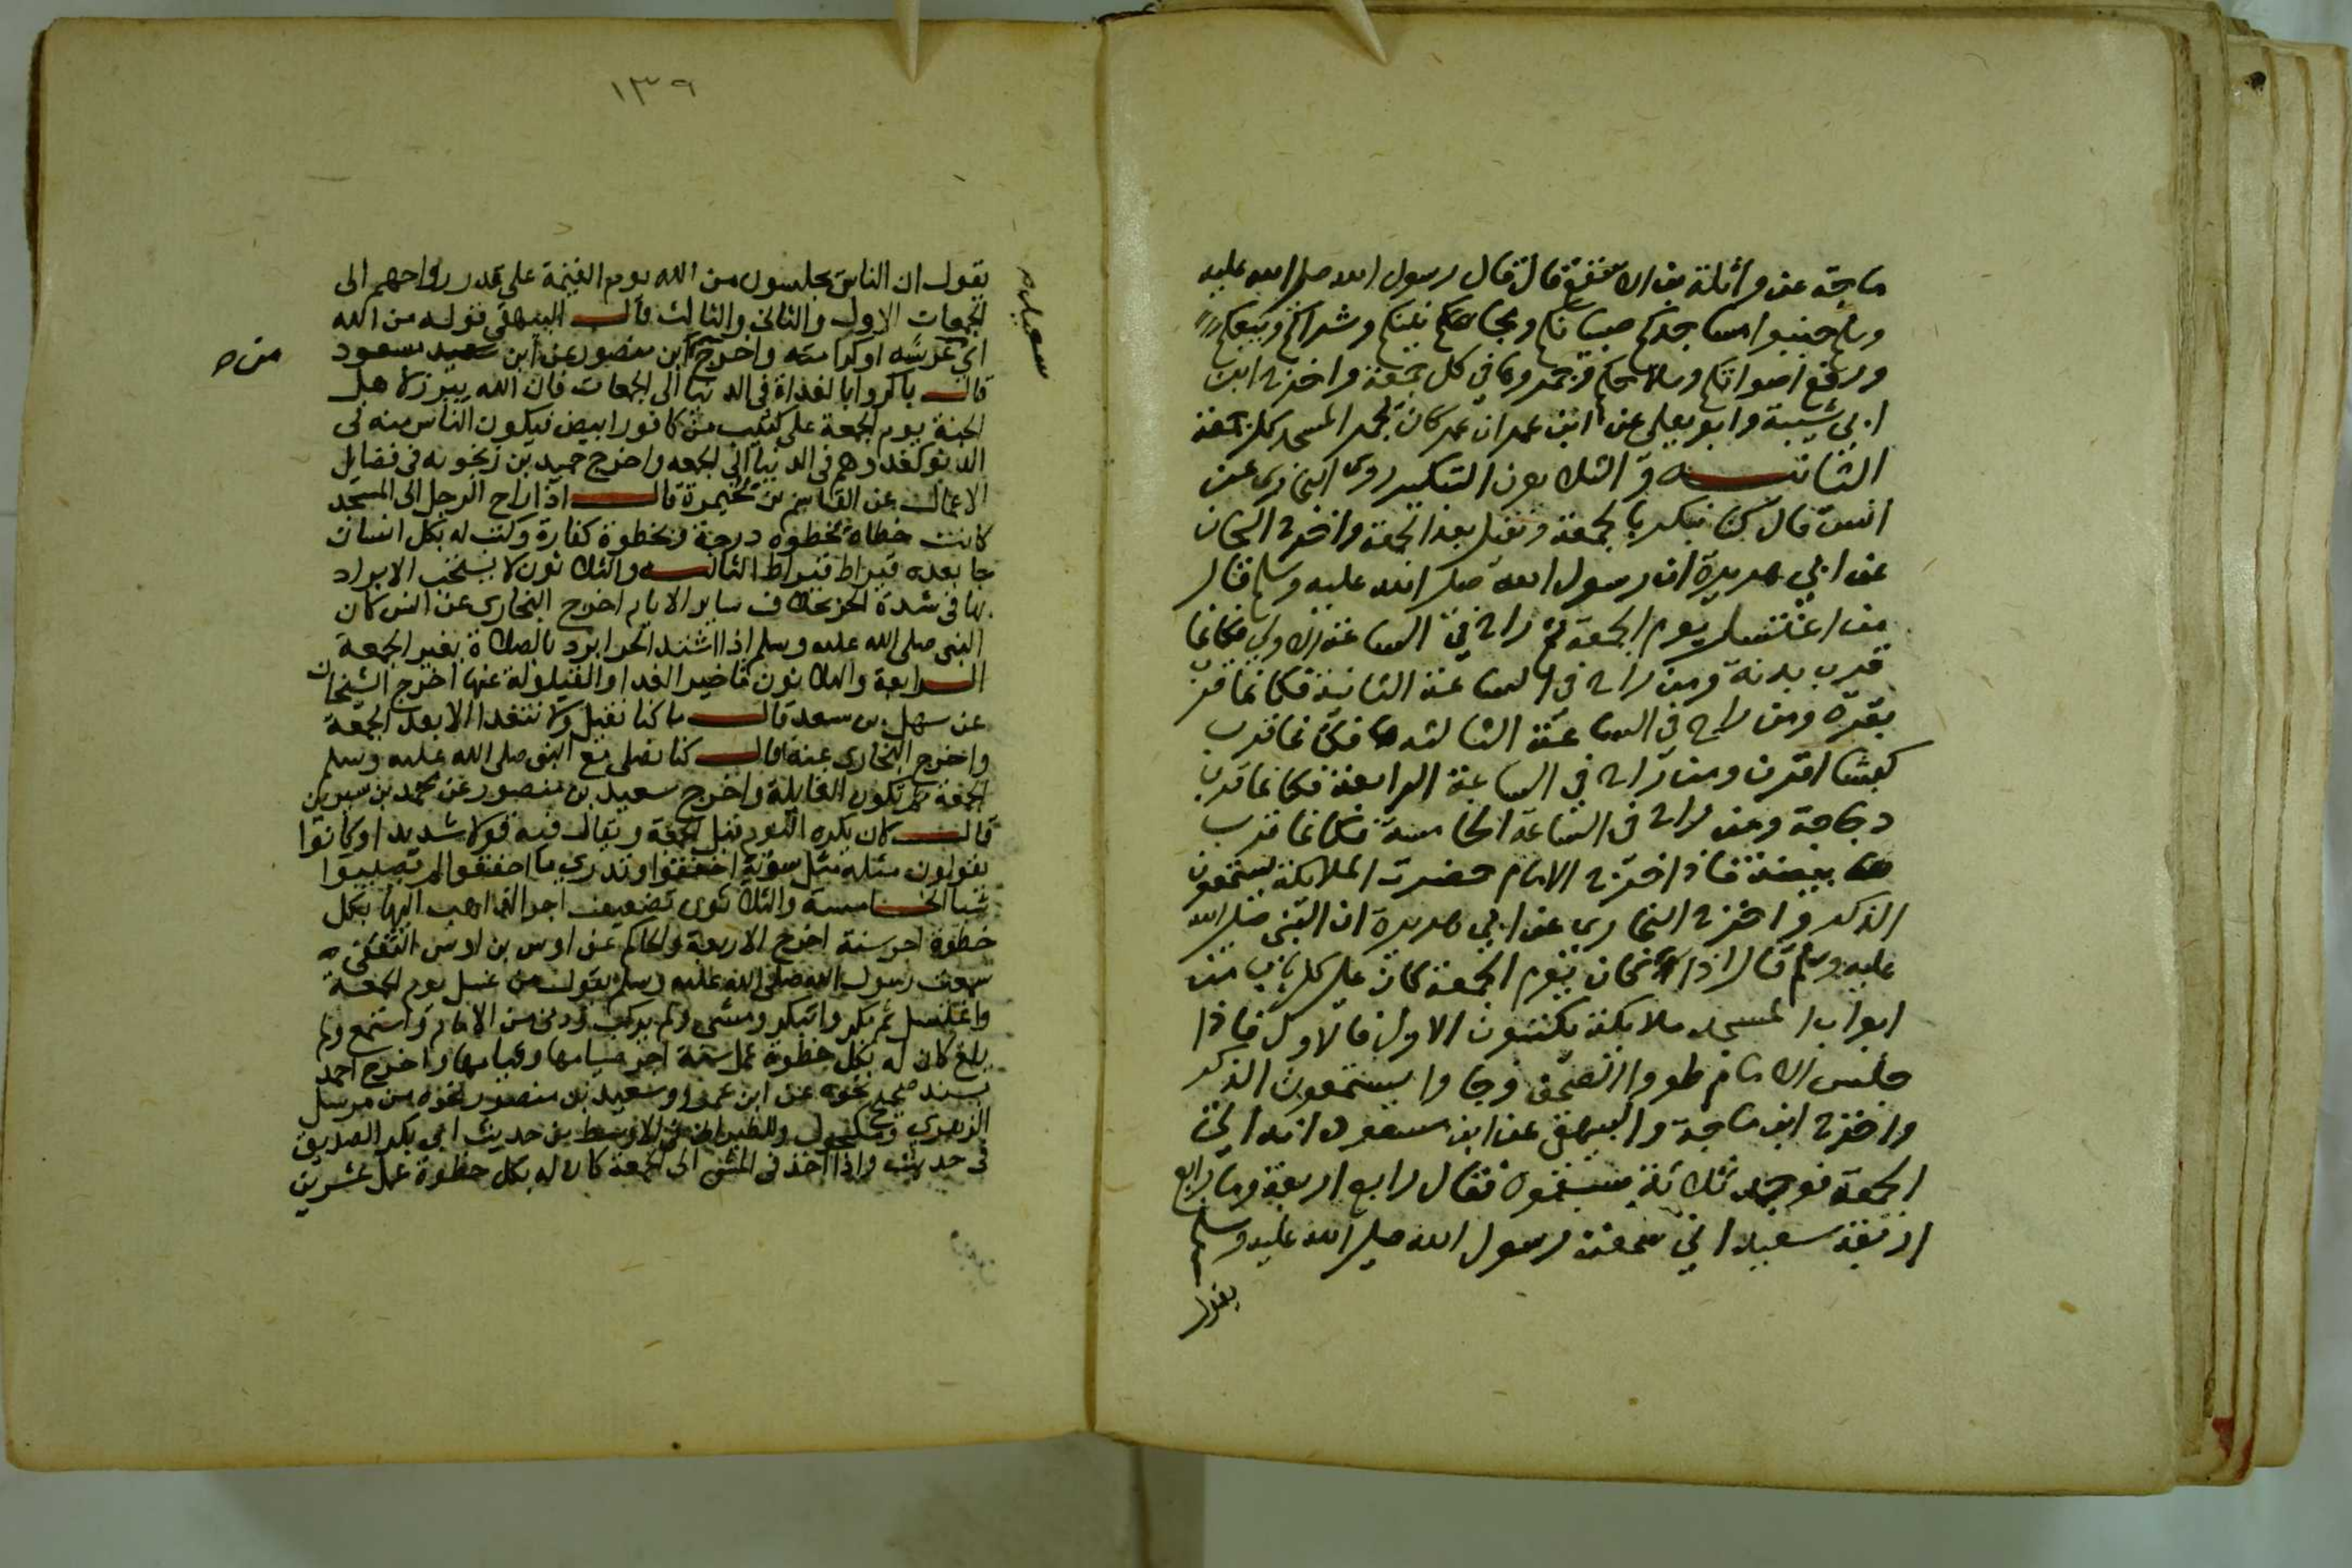 ماجة عن واثلة بن الاسقع قال قال رسول الله صلى الله عليه
وسلم جنبوا مساجدكم صبيانكم ومجانينكم وشراكم وبيعكم
ورفع اصواتكم وسلاحكم وجمروها في كل جمعة واخرج ابن
ابي شيبة وابو يعلى عن ابن عمر ان عمر كان يجمر المسجد كل جمعة
الثانيه والثلاثون التبكير روى البخاري عن
انس قال كنا نبكر بالجمعة ونقيل بعد الجمعة واخرج الشيخان
عن ابي هريرة ان رسول الله صلى الله عليه وسلم قال
من اغتسل يوم الجمعة ثم راح في الساعة الاولى فكانما
قرب بدنة ومن راح في الساعة الثانية فكانما قرب
بقرة ومن راح في الساعة الثالثه فكانما قرب
كبشا اقرن ومن راح في الساعة الرابعة فكانما قرب
دجاجة ومن راح في الساعة الخامسة فكانما قرب
بيضة فاذا خرج الامام حضرت الملايكة يستمعون
الذكر واخرج البخاري عن ابي هريرة ان النبي صلى الله
عليه وسلم قال اذا كان يوم الجمعة كان على كل باب من
ابواب المسجد ملايكة يكتبون الاول فالاول فاذا
جلس الامام طووا الصحف وجاوا يستمعون الذكر
واخرج ابن ماجة والبيهقي عن ابن مسعود انه اتى
الجمعة فوجد ثلاثة سبقوه فقال رابع اربعة وما رابع
اربعة ببعيد اني سمعت رسول الله صلى الله عليه وسلم
يقول
١٣٩
يقول ان الناس يجلسون من الله يوم القيمة على قدر رواحهم الى
الجمعات الاول والثاني والثالث قال البيهقي قوله من الله
اي عرشه او كرامته واخرج ابن منصور عن ابن مسعود
قال باكروا بالغداة في الدنيا الى الجمعات فان الله يبرز لاهل
الجنة يوم الجمعة على كثيب من كافور ابيض فيكون الناس منه في
الدنو كغدوهم في الدنيا الى الجمعه واخرج حميد بن زنجويه في فضايل
الاعمال عن القاسم بن مخيمرة قال اذا راح الرجل الى المسجد
كانت خطاه بخطوه درجة وبخطوة كفارة وكتب له بكل انسان
جا بعده قيراط قيراط الثالثه والثلاثون لا يستحب الابراد
بها في شدة الحر بخلاف ساير الايام اخرج البخارى عن انس كان
النبي صلى الله عليه وسلم اذا اشتد الحر ابرد بالصلاة بغير الجمعة
الرابعة والثلاثون تاخير الغدا والقيلولة عنها اخرج الشيخان
عن سهل بن سعد قال ما كنا نقيل ولا نتغدا الا بعد الجمعة
واخرج البخارى عنه قال كنا نصلى مع النبي صلى الله عليه وسلم
الجمعة ثم تكون القايلة واخرج سعيد بن منصور عن محمد بن سيرين
قال كان يكره النوم قبل الجمعة ويقال فيه قولا شديدا وكانوا
يقولون مثله مثل سرية اخفقوا وتدري ما اخفقوا لم يصيبوا
شيا الخامسة والثلاثون تضعيف اجر الذاهب اليها بكل
خطوة اجر سنة اخرج الاربعة والحاكم عن اوس بن اوس الثقفي
سمعت رسول الله صلى الله عليه وسلم يقول من غسل يوم الجمعة
واغتسل ثم بكر وابتكر ومشى ولم يركب ودنى من الامام واستمع ولم
يلغ كان له بكل خطوة عمل سنة اجر صيامها وقيامها واخرج احمد
بسند صحيح نحوه عن ابن عمرو وسعيد بن منصور نحوه من مرسل
الزهري ومكحول وللطبراني في الاوسط من حديث ابي بكر الصديق
في حديث واذا اخذ في المشي الى الجمعة كان له بكل خطوة عمل عشرين